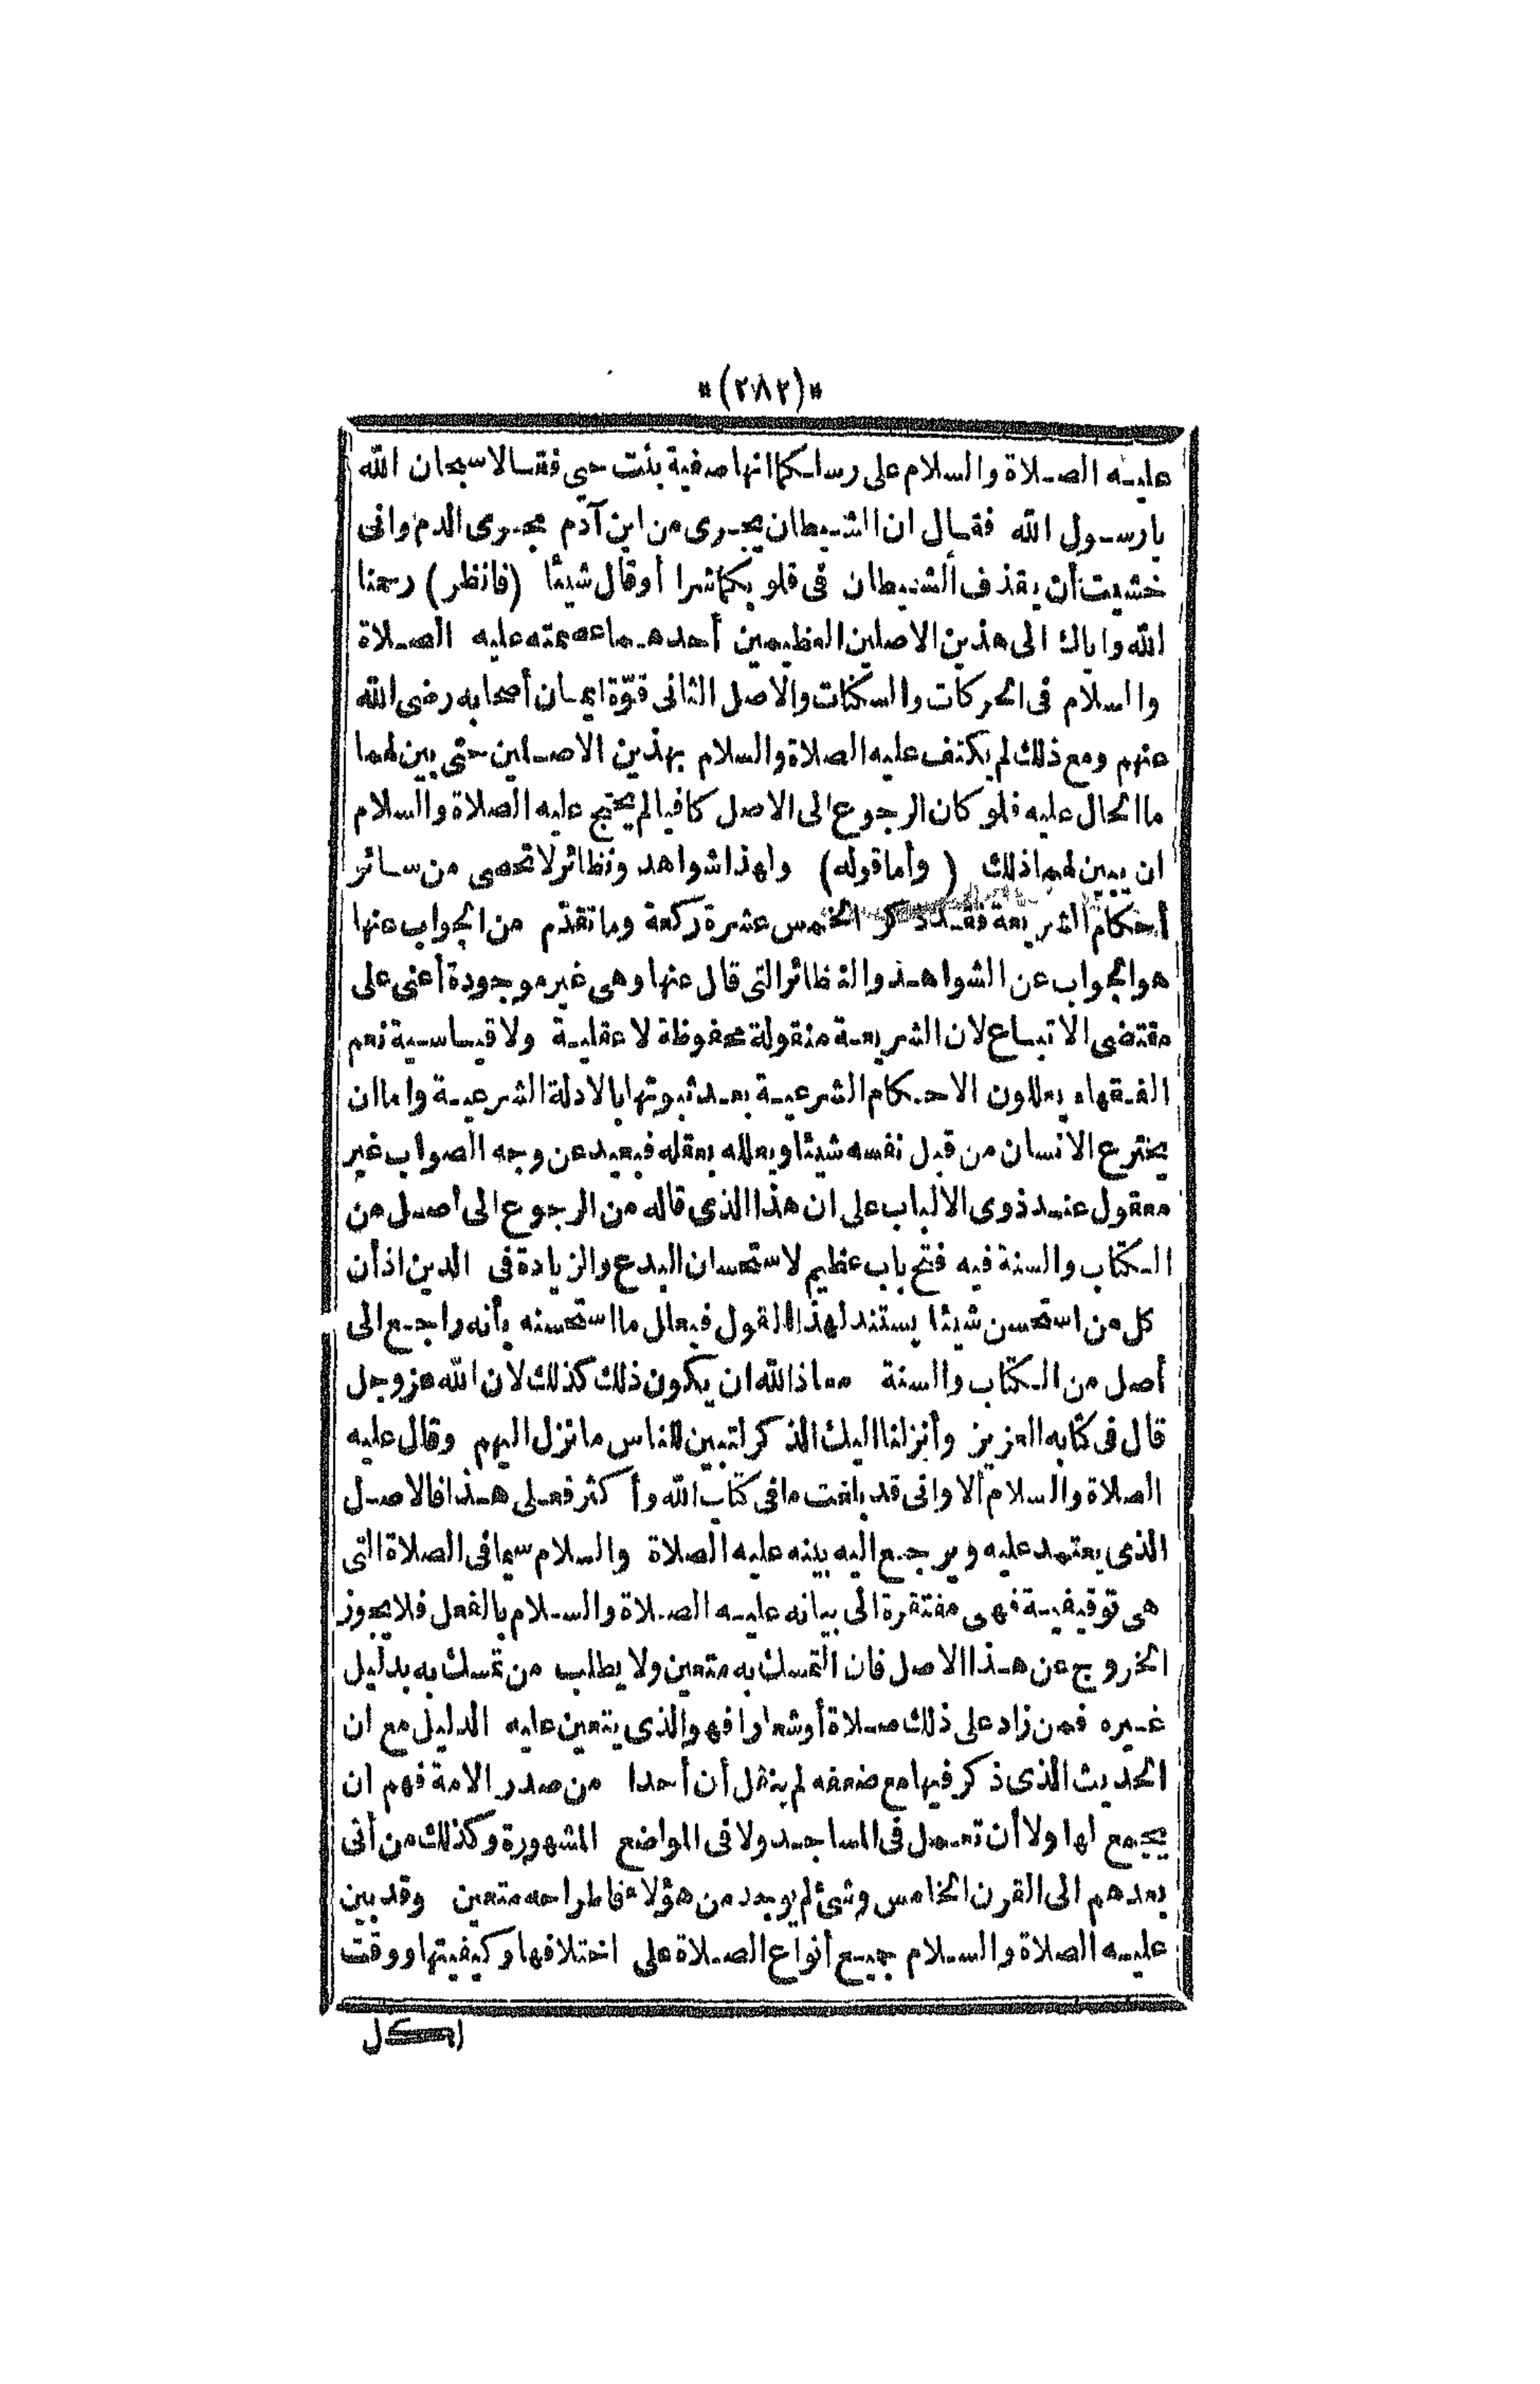 *(٢٨٢)*
عليه الصلاة والسلام على رسلكما انها صفية بنت حيي فقالا سبحان الله
يارسول الله فقال ان الشيطان يجرى من ابن آدم مجرى الدم وانى
خشيت أن يقذف الشيطان فى قلوبكما شرا أوقال شيئا (فانظر) رحمنا
الله واياك الى هذين الاصلين العظيمين أحدهما عصمته عليه الصلاة
والسلام فى الحركات والسكنات والاصل الثانى قوّة ايمان أصحابه رضى الله
عنهم ومع ذلك لم يكتف عليه الصلاة والسلام بهذين الاصلين حتى بين لهما
ما الحال عليه فلو كان الرجوع الى الاصل كافيا لم يحتج عليه الصلاة والسلام
ان يبين لهما ذلك (وأما قوله) ولهذا شواهد ونظائر لا تحصى من سائر
أحكام الشريعة فقد ذكر الخمس عشرة ركعة وما تقدّم من الجواب عنها
هو الجواب عن الشواهد والنظائر التى قال عنها وهى غير موجودة أعنى على
مقتضى الاتباع لان الشريعة منقولة محفوظة لا عقلية ولا قياسية نعم
الفقهاء يعللون الاحكام الشرعية بعد ثبوتها بالادلة الشرعية واما ان
يخترع الانسان من قبل نفسه شيئا ويعلله بعقله فبعيد عن وجه الصواب غير
معقول عند ذوى الالباب على ان هذا الذى قاله من الرجوع الى أصل من
الكتاب والسنة فيه فتح باب عظيم لاستحسان البدع والزيادة فى الدين اذ أن
كل من استحسن شيئا يستند لهذا القول فيعلل ما استحسنه بأنه راجع الى
أصل من الكتاب والسنة معاذ الله ان يكون ذلك كذلك لان الله عز وجل
قال فى كتابه العزيز وأنزلنا اليك الذكر لتبين للناس ما نزل اليهم وقال عليه
الصلاة والسلام ألا وانى قد بلغت ما فى كتاب الله وأكثر فعلى هذا فالاصل
الذى يعتمد عليه ويرجع اليه بينه عليه الصلاة والسلام سيما فى الصلاة التى
هى توقيفية فهى مفتقرة الى بيانه عليه الصلاة والسلام بالفعل فلا يجوز
الخروج عن هذا الاصل فان التمسك به متعين ولا يطلب من تمسك به بدليل
غيره فمن زاد على ذلك صلاة أو شعارا فهو الذى يتعين عليه الدليل مع ان
الحديث الذى ذكر فيها مع ضعفه لم ينقل أن أحدا من صدر الامة فهم ان
يجمع لها ولا أن تعمل فى المساجد ولا فى المواضع المشهورة وكذلك من أتى
بعدهم الى القرن الخامس وشئ لم يوجد من هؤلاء فاطراحه متعين وقد بين
عليه الصلاة والسلام جميع أنواع الصلاة على اختلافها وكيفيتها ووقت
لكل